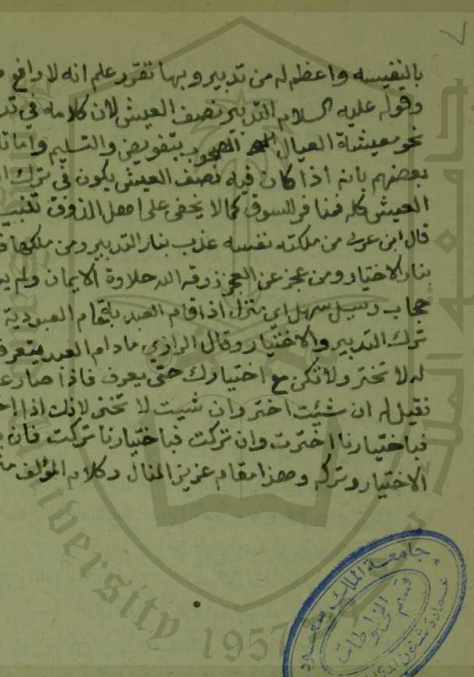 بالنفيسه واعظم له من تدبير وبها تقرر علم انه لا دافع
وقوله عليه السلام التدبير نصف العيش لان كلامه في
نحو معيشة العيال المصحوب بتفويض والتسليم واما
بعضهم بانه اذا كان فيه نصف العيش يكون في ترك
العيش كله فمنافر للسوق كما لا يخفى على اهل الذوق
قال ابن عربي من ملكته نفسه عذب بنار التدبير ومن ملكها
بنار الاختيار ومن عجز عن العجز ذوقه الله حلاوة الايمان ولم
حجاب وسيل سهل اي منزل اذا قام العبد به قام العبودية
ترك التدبير والاختيار وقال الرازي مادام العبد يتعرف
له لا تختر ولا تكن مع اختيارك حتى يعرف فاذا صار
نقيل له ان شئت اختر وان شيت لا تختر لانك اذا
فباختيارنا اخترت وان تركت فباختيارنا تركت فان
الاختيار وتركه وهذا مقام عزيز المنال وكلام المؤلف
جامعة الملك سعود
قسم المخطوطات
University
1957